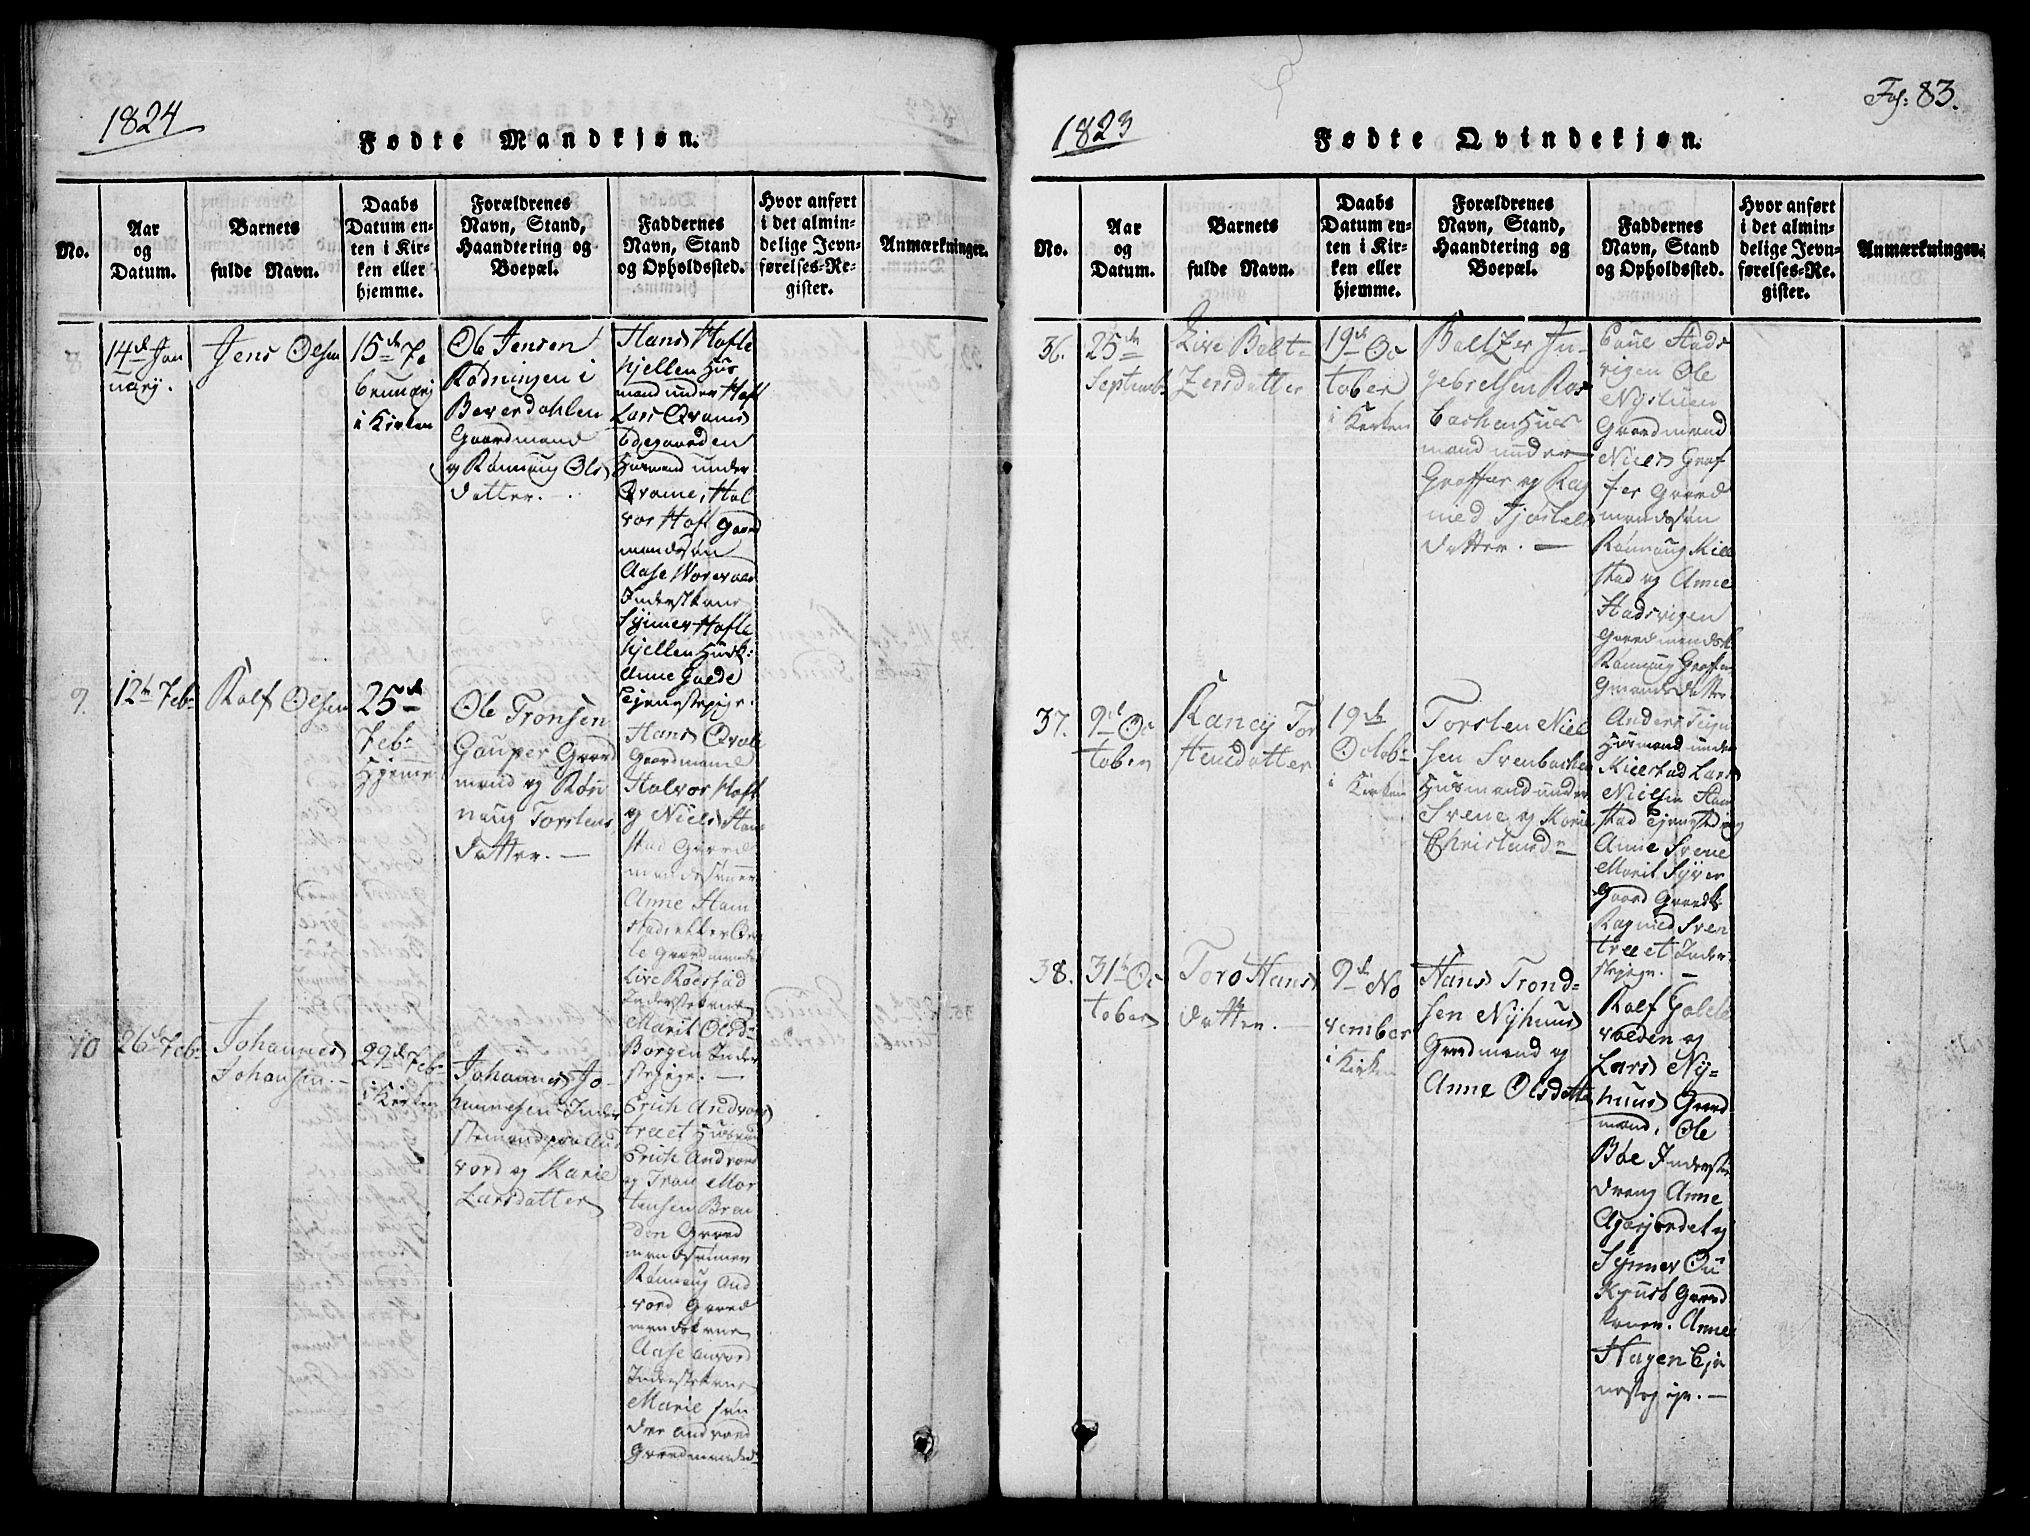 1824
Fødte Mandkjøn.
No.
Aar
og
Datum.
Barnets
fulde Navn.
Daabs
Datum en-
ten i Kir-
ken eller
hjemme.
Forældrenes
Navn, Stand,
Haandtering og
Boepæl.
Faddernes
Navn, Stand
og Opholdssted.
Hvor anført
i det almin-
delige Jevn-
førelses-Re-
gister.
Anmærkninger.
8
14de Jan
uarij.
Jens Olsen
15de Fe
bruarij
i Kirken
Ole Jensen
Rødningen i
Beverdahlen
Gaardmand
og Rønnaug Ols
datter.
Hans Hofle
hjellen Hus
mand under Hofl
Lars Qvams
Ødegaarden
Husmand under
Qvame, Hal
vor Hofl Gaard
mandssøn
Aase
Inderstkone
Synnev Hofle
hjellen Husk:
Anne Galde
Tjenstepige.
9.
12te Feb:
Rolf Olsen
25de
Feb:
Hjemme
Ole Tronsen
Gauper Gaard
mand og Røn
naug Torstens
datter. —
Hans Qvale
Gaardmand
Halvor Hofl
og Niels Ham
stad Gaard
mandssønner
Anne Ham
stad
le Gaardmands
Live Røestad
Inderstekone
Marit Olsd:
Borgen Inder
stepige. —
10
26de Feb:
Johannes
Johansen. —
29de Feb:
i Kirken
Johannes Jo-
hannesen Inder
stemand paa And
vord og Marie
Larsdatter
Erich Andvords
træet Husmand
Erich Andvord
og Tron Mor
tensen Bren
den Gaard
mandssønner
Rønnaug And
vord Gaard
mandskone
Aase Anvord
Inderstekone
Marie Søn
dre Andvord
Gaardmandsd:
Fol: 83.
1823
Fødte Qvindekjøn.
No.
Aar
og
Datum.
Barnets
fulde Navn.
Daabs
Datum en-
ten i Kir-
ken eller
hjemme.
Forældrenes
Navn, Stand,
Haandtering og
Boepæl.
Faddernes
Navn, Stand
og Opholdssted.
Hvor anført
i det almin-
delige Jevn-
førelses-Re-
gister.
Anmærkninger.
36.
25de
Septemb:
Live Balt-
Zersdatter
19de Oc
tober
i Kirken
BaltZer In-
gebretsen Ros
bachen Hus
mand under
Graffer og Rag
nied Tjøstels
datter. —
Poul Stads
vigen Ole
Nystuen
Gaardmand
Niels Graf
fer Gaard
mandssøn
Rønnaug Kiel
stad og Anne
Stadsvigen
Gaardmandsk:
Rønnaug Graffer
Gmandsdatter
37.
9de Oc
tober
Rancy Tor
stensdatter
19de
Octob:
i Kirken
Torsten Niel
sen Svenbachen
Husmand under
Svene og Marie
Christensd:
Anders
Husmand under
Kielstad Lars
Nielsen Ham
stad Tjenstedreng
Anne Svene
Marit Syver
Gaard Gaardk:
Ragnied Sven
træet Inder
stepige. —
38.
31te Oc
tober
Toro Hans
datter. —
9de No
vember
i Kirken
Hans Trond-
sen Nyhuus
Gaardmand og
Anne Olsdatter
Rolf Galde
volden og
Lars Ny-
huus Gaard
mand, Ole
Bøe Inderste
dreng Anne
Agerjordet og
Synnev Ou
Gaard
koner. Anne
Hagen Tje
nestepige. —